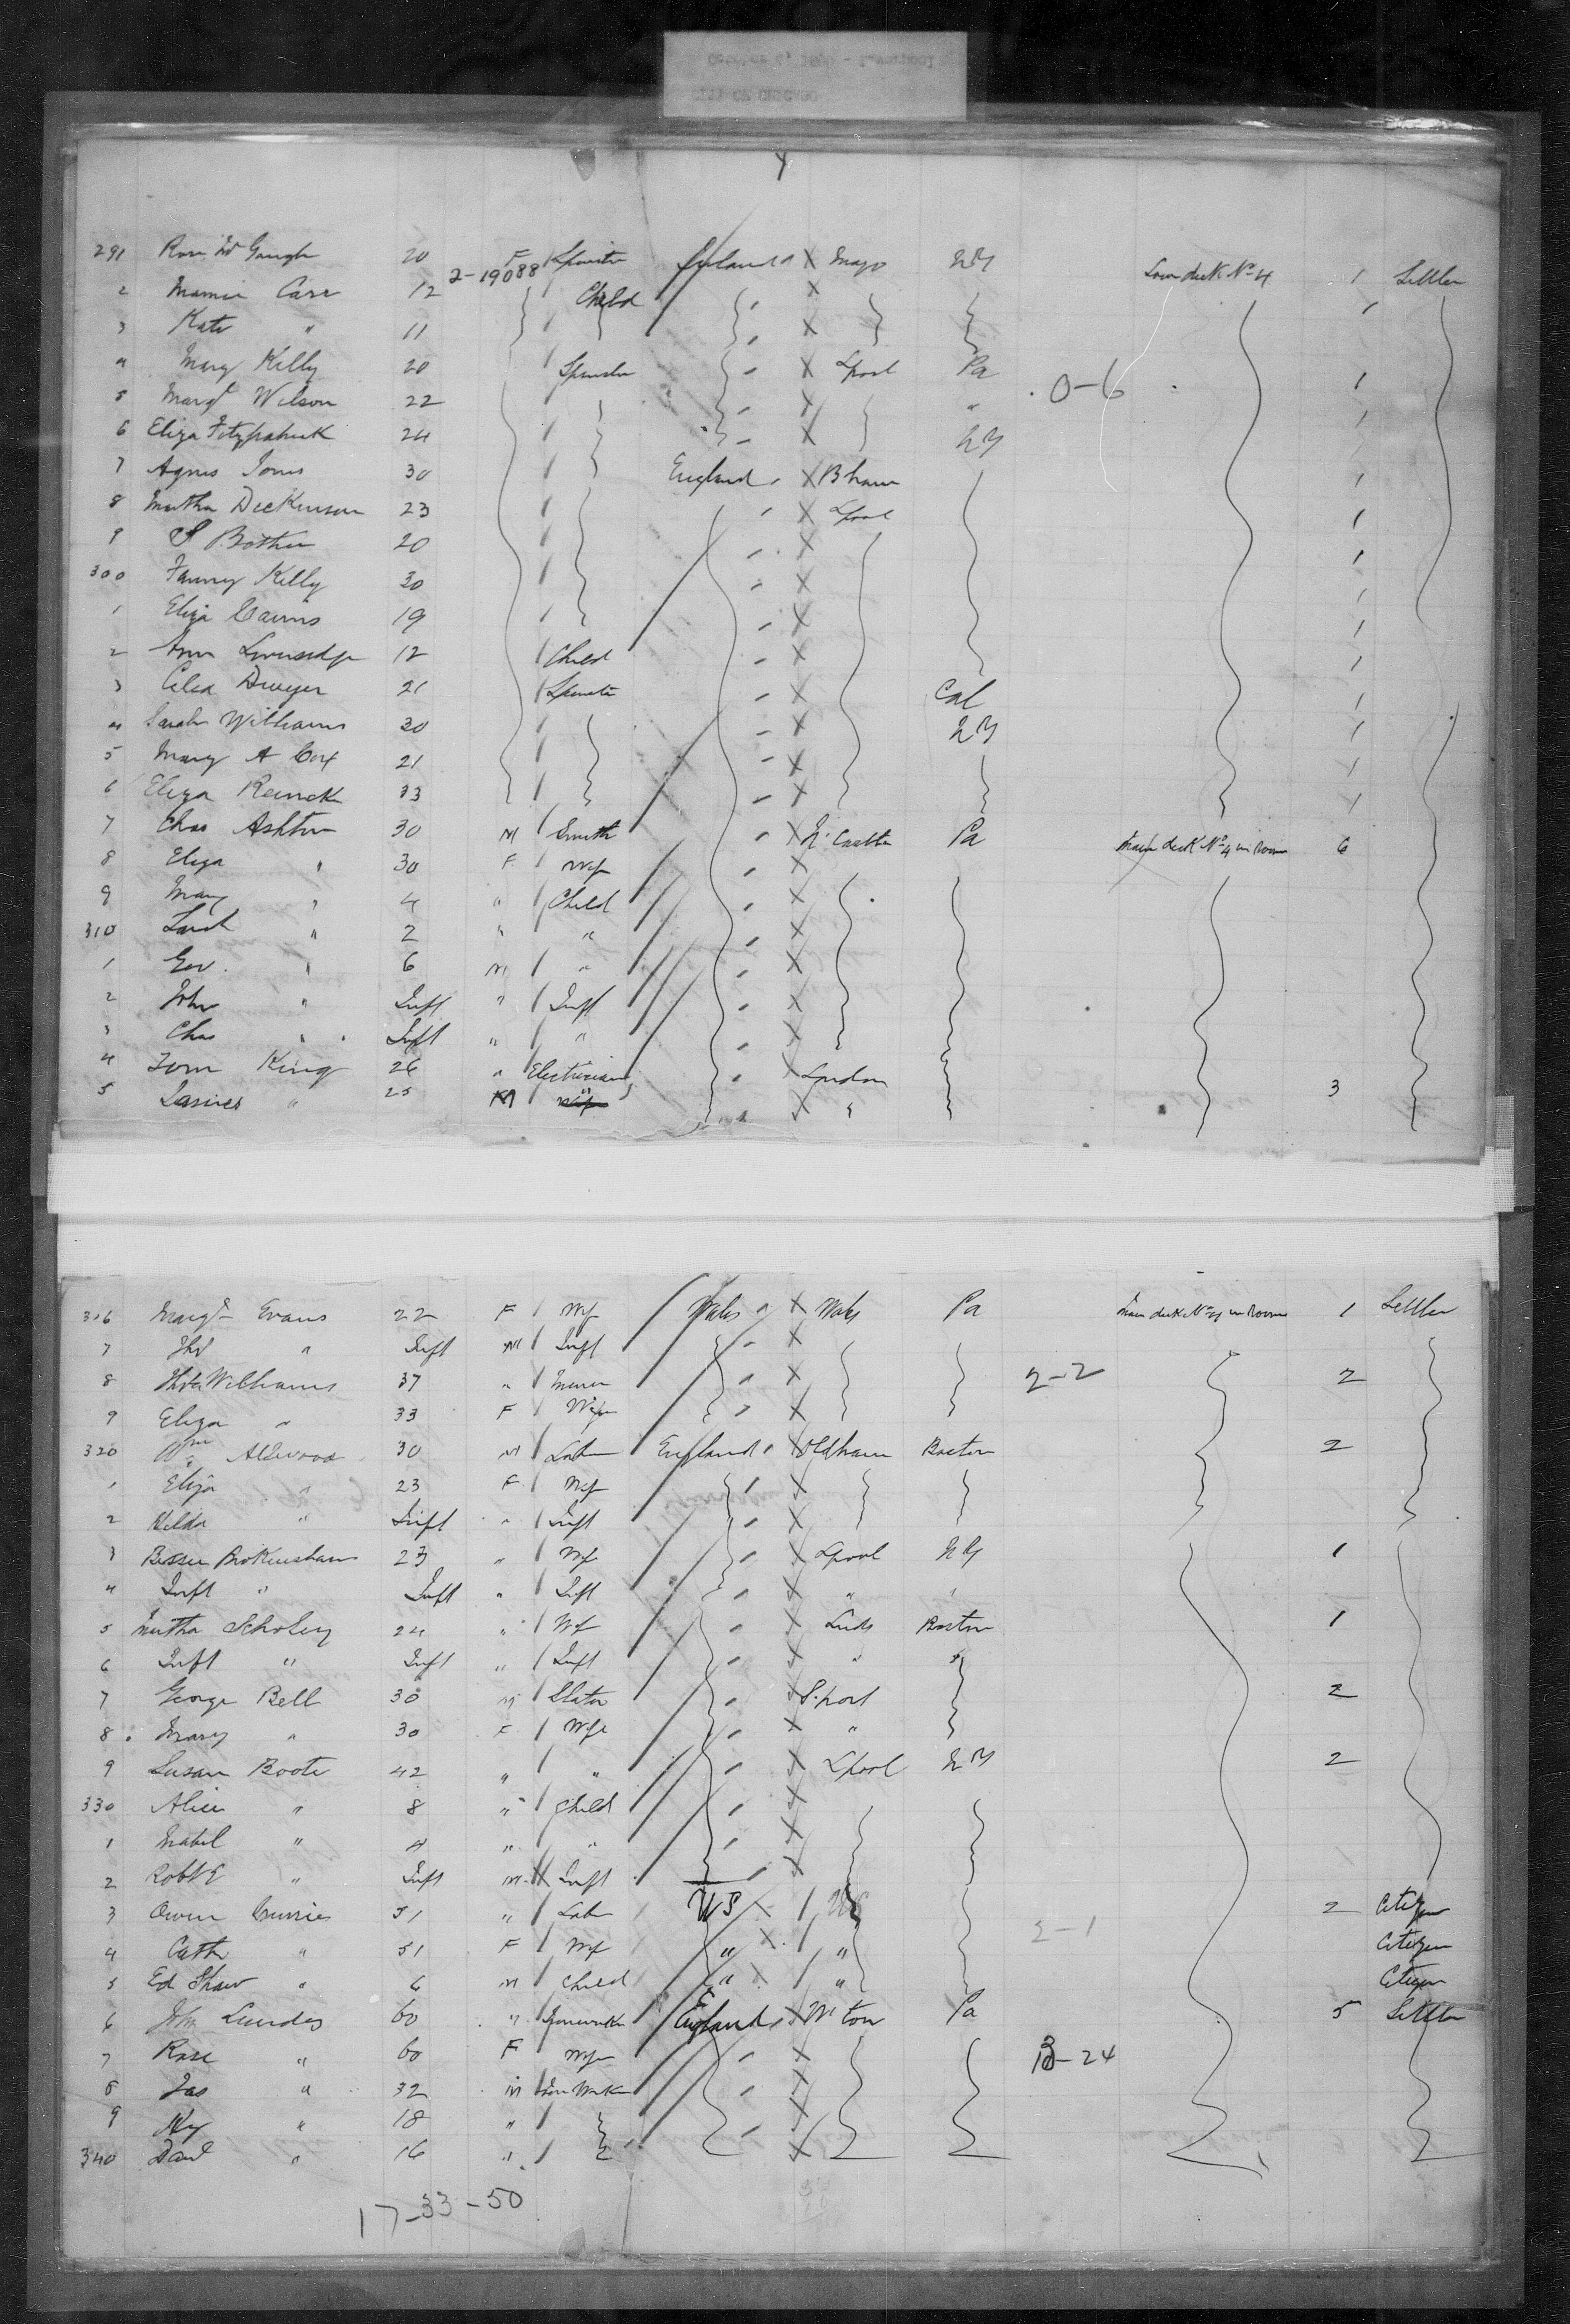 Y
291 Rose McGough 20 F / Spinster Ireland X Mayo NY Lower deck No 4 1 Settler
2-19088
2 Mamie Carr 12 / Child X 1
3 Kate " 11 / X
4 Mary Kelly 20 / Spinster X Lpool Pa 1
0-6
5 Margt Wilson 22 / X " 1
6 Eliza Fitzpatrick 24 / X NY 1
7 Agnes Jones 30 / England X Bham 1
8 Martha Dickinson 23 / X Lpool 1
9 20 / X 1
300 Fanny Kelly 30 / X 1
1 Eliza Cairns 19 / X 1
2 Ann 12 / Child X 1
3 Celia Dwyer 21 / Spinster X Cal 1
4 Sarah Williams 30 / X NY 1
5 Mary A Cox 21 / X 1
6 Eliza 33 / X 1
7 Chas Ashton 30 M / Smith X N. Castle Pa Main deck No 4 in Room 6
8 Eliza " 30 F / Wife X
9 Mary " 4 " / Child X
310 Sarah " 2 " " X
1 Geo. " 6 M / " X
2 John " Inft " / Inft X
3 Chas " Inft " / " X
4 Tom King 26 " / Electrician X London
5 " 25 M " X " 3
316 Margt Evans 22 F / Wife Wales X Wales Pa Main deck No 4 in Room 1 Settler
7 " Inft M / Inft X
8 Williams 37 " / Miner X 2-2 2
9 Eliza " 33 F / Wife X
320 Wm Allwood 30 M / Labr England X Oldham Boston 2
1 Eliza " 23 F / Wife X
2 Hilda " Inft " / Inft X
3 Bessie Brokenshaw 23 " / Wife X Lpool NY 1
4 Inft " Inft " / Inft X " "
5 Martha Scholey 24 " / Wife X Leeds Boston 1
6 Inft " Inft " / Inft X " "
7 George Bell 30 M / Slater X S.port 2
8 Mary " 30 F / Wife X "
9 Susan Boote 42 " " X Lpool NY 2
330 Alice " 8 " / Child X
1 Mabel " 4 " " X
2 Robt E " Inft M / Inft X
3 Owen Currie 51 " / Labr US X / US 2 Citizen
2-1
4 Cath " 51 F / Wife " X / " Citizen
5 Ed Shaw " 6 M / Child " X / " Citizen
6 John 60 " / Ironworker England X W. ton Pa 5 Settler
7 Rose " 60 F Wife X
13-24
8 Jas " 32 M / Iron Worker X
9 Hy " 18 " / X
340 Danl " 16 " / X
17-33-50